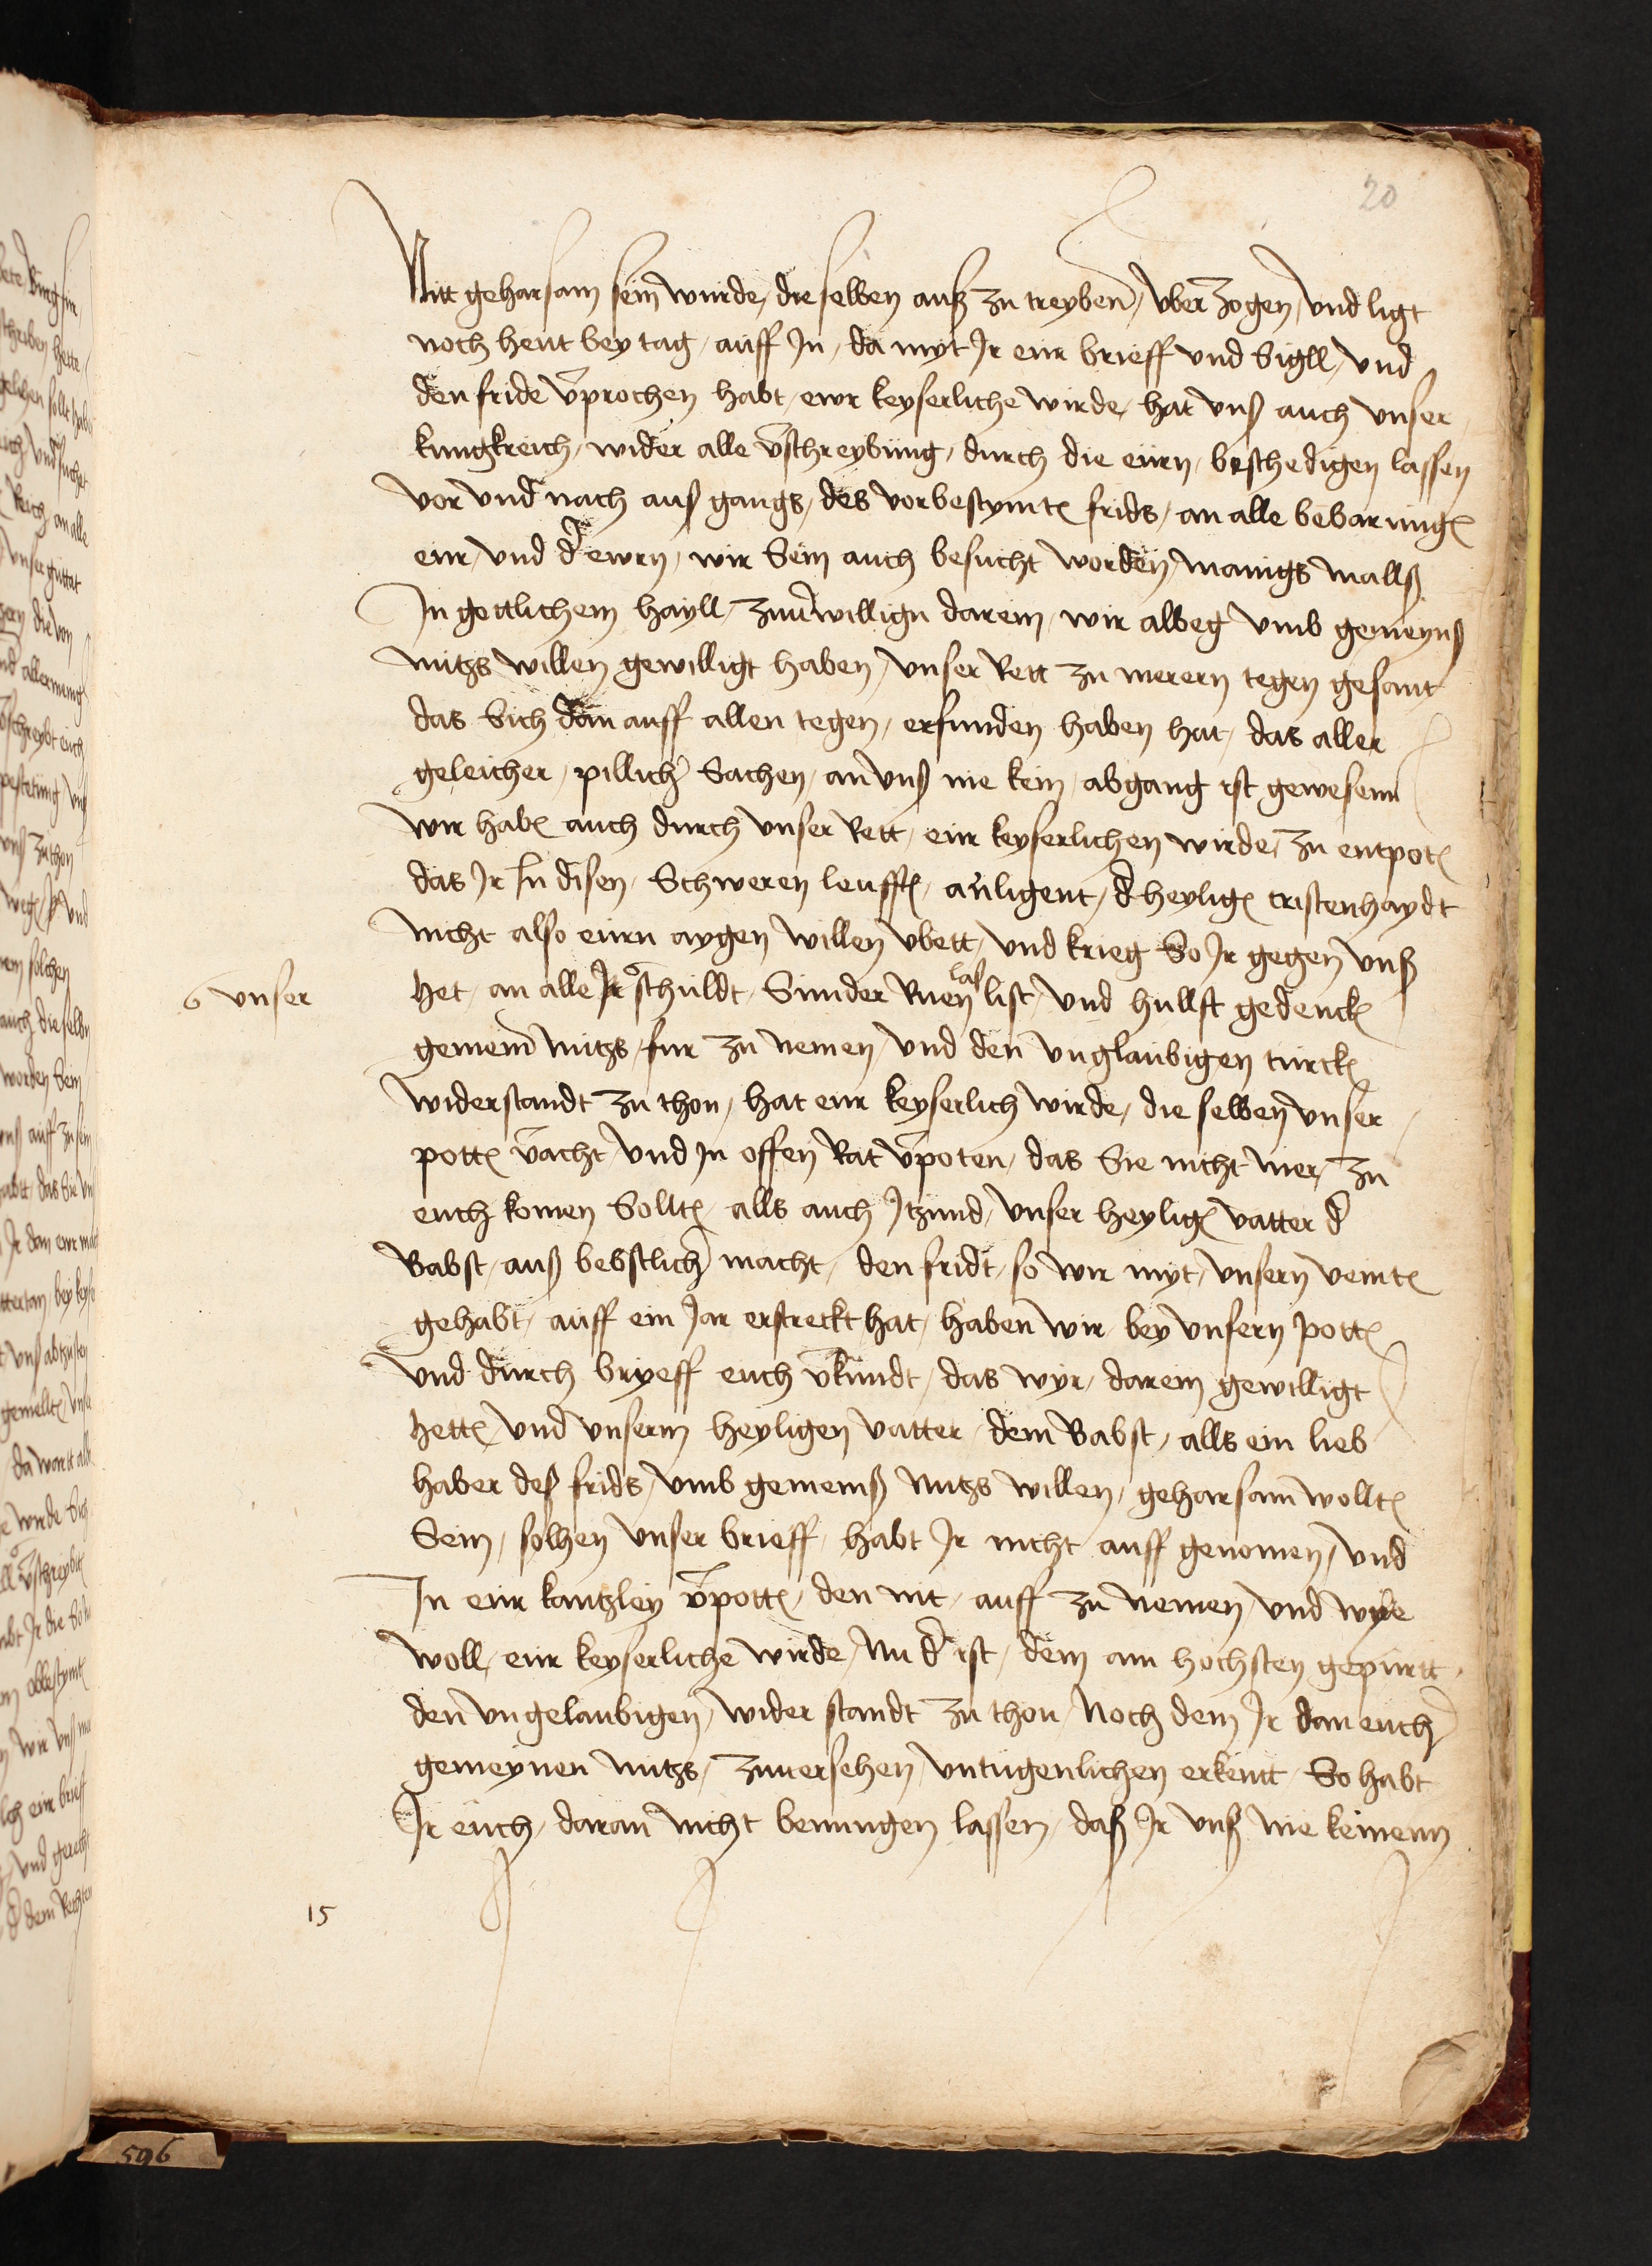 20
Nitt geharsam sein wurde, die selben auß zu treyben, vberzogen, vnd ligt
noch heut bey tag, auff In, da myt Ir eur brieff vnd Sigll, vnd
den fride v̄prochen habt, ewr keyserliche wirde, hat vnß auch vnser
kungkreich, wider alle v̄schreybung, durch die eurn, beschedigen lassen
vor vnd nach auß gangs, des vorbestymtn frids, an alle bebarungn
eur vnd d̄ ewrn, wir Sein auch besucht worden, manigs malls
In gettlichem hayll, zuuerwillign darein, wir albeg vmb gemeyns
nutzs willen gewilligt haben, vnser Rett zu merern tegen gesant
das Sich dan auff allen tegen, erfunden haben hat, das aller
geleicher, pillicher Sachen, an vnß nie kein, abgang ist gewesenn
wir habn auch durch vnser Rett, eur keyserlichen wirde, zu entpotn
das Ir In disen, Schweren leufftn, anligent, d̄ heylign cristenhaydt
nicht also eurn aygen willen vbett, vnd krieg So Ir gegen vnß
6 vnser
het, an alle Ir schuldt, Sunder Ruen last, vnd hullft gedenckn
gemein nutzs, fur zu nemen, vnd den vnglaubigen turckn
widerstandt zu thon, hat eur keyserlich wirde, die selben vnser
pottn v̄acht, vnd In offen Rat v̄poten, das Sie nicht mer, zu
euch komen Solltn, alls auch Itzund, vnser heylign vatter d̄
Babst, auß bebstlicher macht, den fridt, so wir myt, vnsern veintn
gehabt, auff ein Jar erstreckt hat, haben wir bey vnsern pottn
vnd durch bryeff euch v̄kundt, das wyr, darein gewilligt
hettn, vnd vnserm heyligen vatter, dem Babst, alls ein lieb
haber deß frids, vmb gemeinß Nutzs willen, geharsam wolltn
Sein, solhen vnser brieff, habt Ir nicht auff genomen, vnd
In eur kantzley v̄pottn, den nit, auff zu nemen, vnd wye
woll, eur keyserliche wirde, Nu d̄ ist, dem am hochsten gepurtt
den vngelaubigen, wider standt zu thon, Noch dem Ir dan euch
gemeynen nutzs, zuuersehen, vntugenlichen erkentt, So habt
Ir euch, daran nicht benungen lassen, daß Ir vnß nie keinenn
15
596